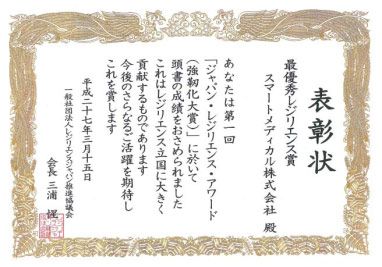 表彰状
最優秀レジリエンス賞
スマートメディカル株式会社 殿
あなたは第一回
「ジャパン・レジリエンス・アワード
（強靭化大賞）」に於いて
頭書の成績をおさめられました
これはレジリエンス立国に大きく
貢献するものであります
今後のさらなるご活躍を期待し
これを賞します
平成二十七年三月十五日
一般社団法人レジリエンスジャパン推進協議会
会長 三浦 惺